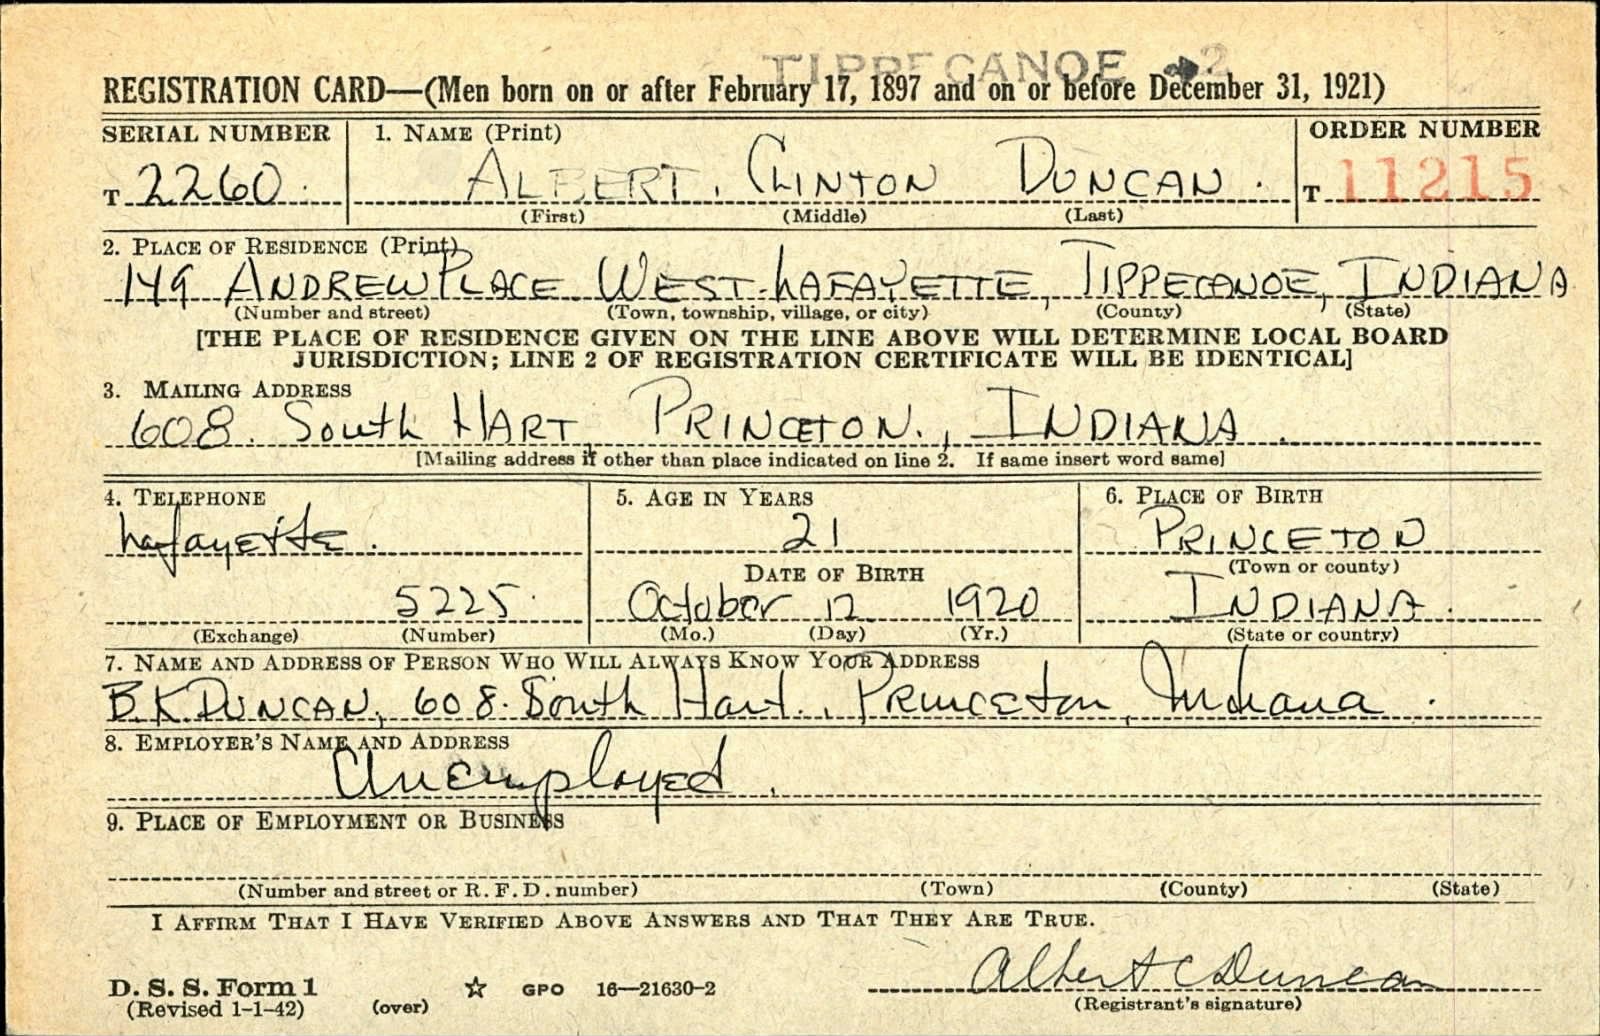 TIPPECANOE 2
REGISTRATION CARD—(Men born on or after February 17, 1897 and on or before December 31, 1921)
SERIAL NUMBER 1. NAME (Print) ORDER NUMBER
T 2260 ALBERT. CLINTON DUNCAN. T 11215
(First) (Middle) (Last)
2. PLACE OF RESIDENCE (Print)
149 ANDREW PLACE WEST LAFAYETTE, TIPPECANOE, INDIANA
(Number and street) (Town, township, village, or city) (County) (State)
[THE PLACE OF RESIDENCE GIVEN ON THE LINE ABOVE WILL DETERMINE LOCAL BOARD
JURISDICTION; LINE 2 OF REGISTRATION CERTIFICATE WILL BE IDENTICAL]
3. MAILING ADDRESS
608. South HART, PRINCETON., INDIANA.
[Mailing address if other than place indicated on line 2. If same insert word same]
4. TELEPHONE 5. AGE IN YEARS 6. PLACE OF BIRTH
Lafayette. 21 PRINCETON
DATE OF BIRTH (Town or county)
5225. October 12 1920 INDIANA.
(Exchange) (Number) (Mo.) (Day) (Yr.) (State or country)
7. NAME AND ADDRESS OF PERSON WHO WILL ALWAYS KNOW YOUR ADDRESS
B.K. DUNCAN, 608. South Hart., Princeton, Indiana.
8. EMPLOYER'S NAME AND ADDRESS
Unemployed.
9. PLACE OF EMPLOYMENT OR BUSINESS
(Number and street or R. F. D. number) (Town) (County) (State)
I AFFIRM THAT I HAVE VERIFIED ABOVE ANSWERS AND THAT THEY ARE TRUE.
Albert C Duncan
D. S. S. Form 1
(Revised 1-1-42) (over) ☆ GPO 16—21630-2 (Registrant's signature)